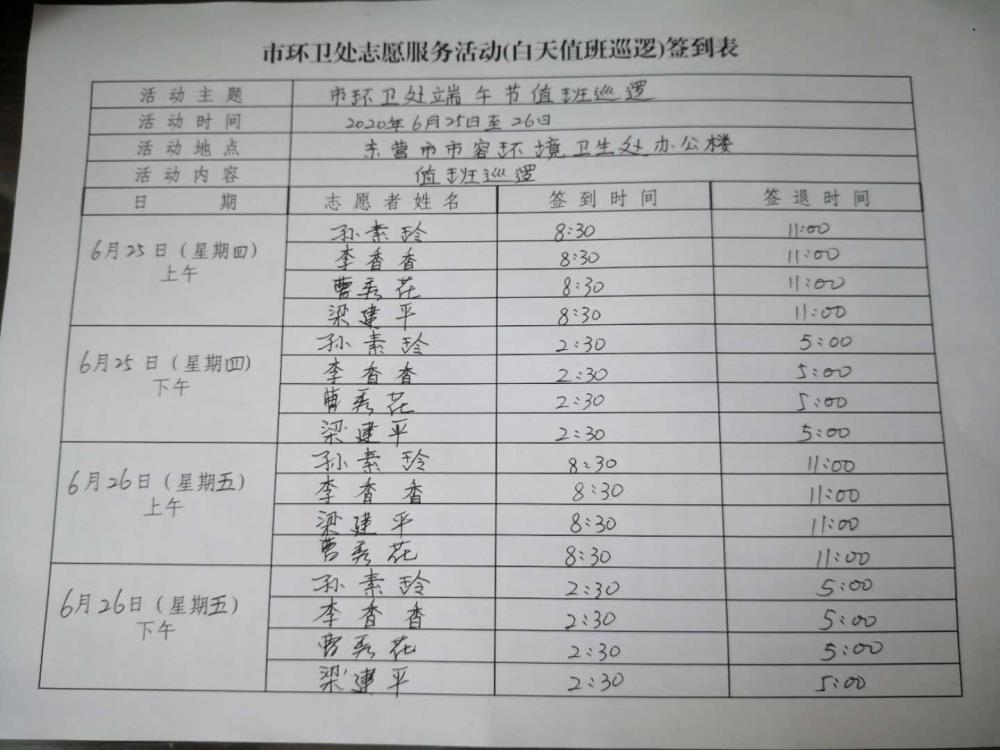 市环卫处志愿服务活动(白天值班巡逻)签到表
活动主题 市环卫处端午节值班巡逻
活动时间 2020年6月25日至26日
活动地点 东营市市容环境卫生处办公楼
活动内容 值班巡逻
日期 志愿者姓名 签到时间 签退时间
6月25日(星期四)
上午
孙素玲 8:30 11:00
李香香 8:30 11:00
曹秀花 8:30 11:00
梁建平 8:30 11:00
6月25日(星期四)
下午
孙素玲 2:30 5:00
李香香 2:30 5:00
曹秀花 2:30 5:00
梁建平 2:30 5:00
6月26日(星期五)
上午
孙素玲 8:30 11:00
李香香 8:30 11:00
梁建平 8:30 11:00
曹秀花 8:30 11:00
6月26日(星期五)
下午
孙素玲 2:30 5:00
李香香 2:30 5:00
曹秀花 2:30 5:00
梁建平 2:30 5:00